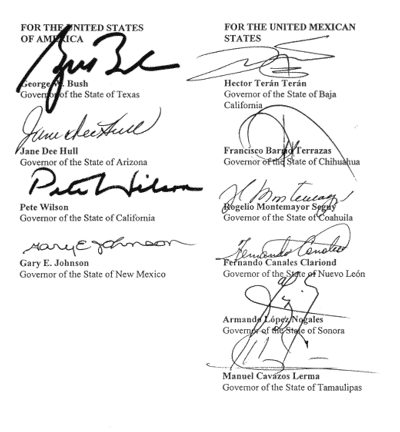 FOR THE UNITED STATES
OF AMERICA
George W. Bush
Governor of the State of Texas
Jane Dee Hull
Jane Dee Hull
Governor of the State of Arizona
Pete Wilson
Pete Wilson
Governor of the State of California
Gary E. Johnson
Gary E. Johnson
Governor of the State of New Mexico
FOR THE UNITED MEXICAN
STATES
Hector Terán Terán
Governor of the State of Baja
California
Francisco Barrio Terrazas
Governor of the State of Chihuahua
Rogelio Montemayor Seguy
Governor of the State of Coahuila
Fernando Canales
Fernando Canales Clariond
Governor of the State of Nuevo León
Armando López Nogales
Governor of the State of Sonora
Manuel Cavazos Lerma
Governor of the State of Tamaulipas